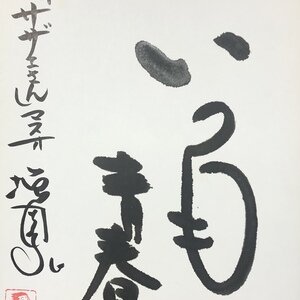 いつも
青春
サザエさん マスオ